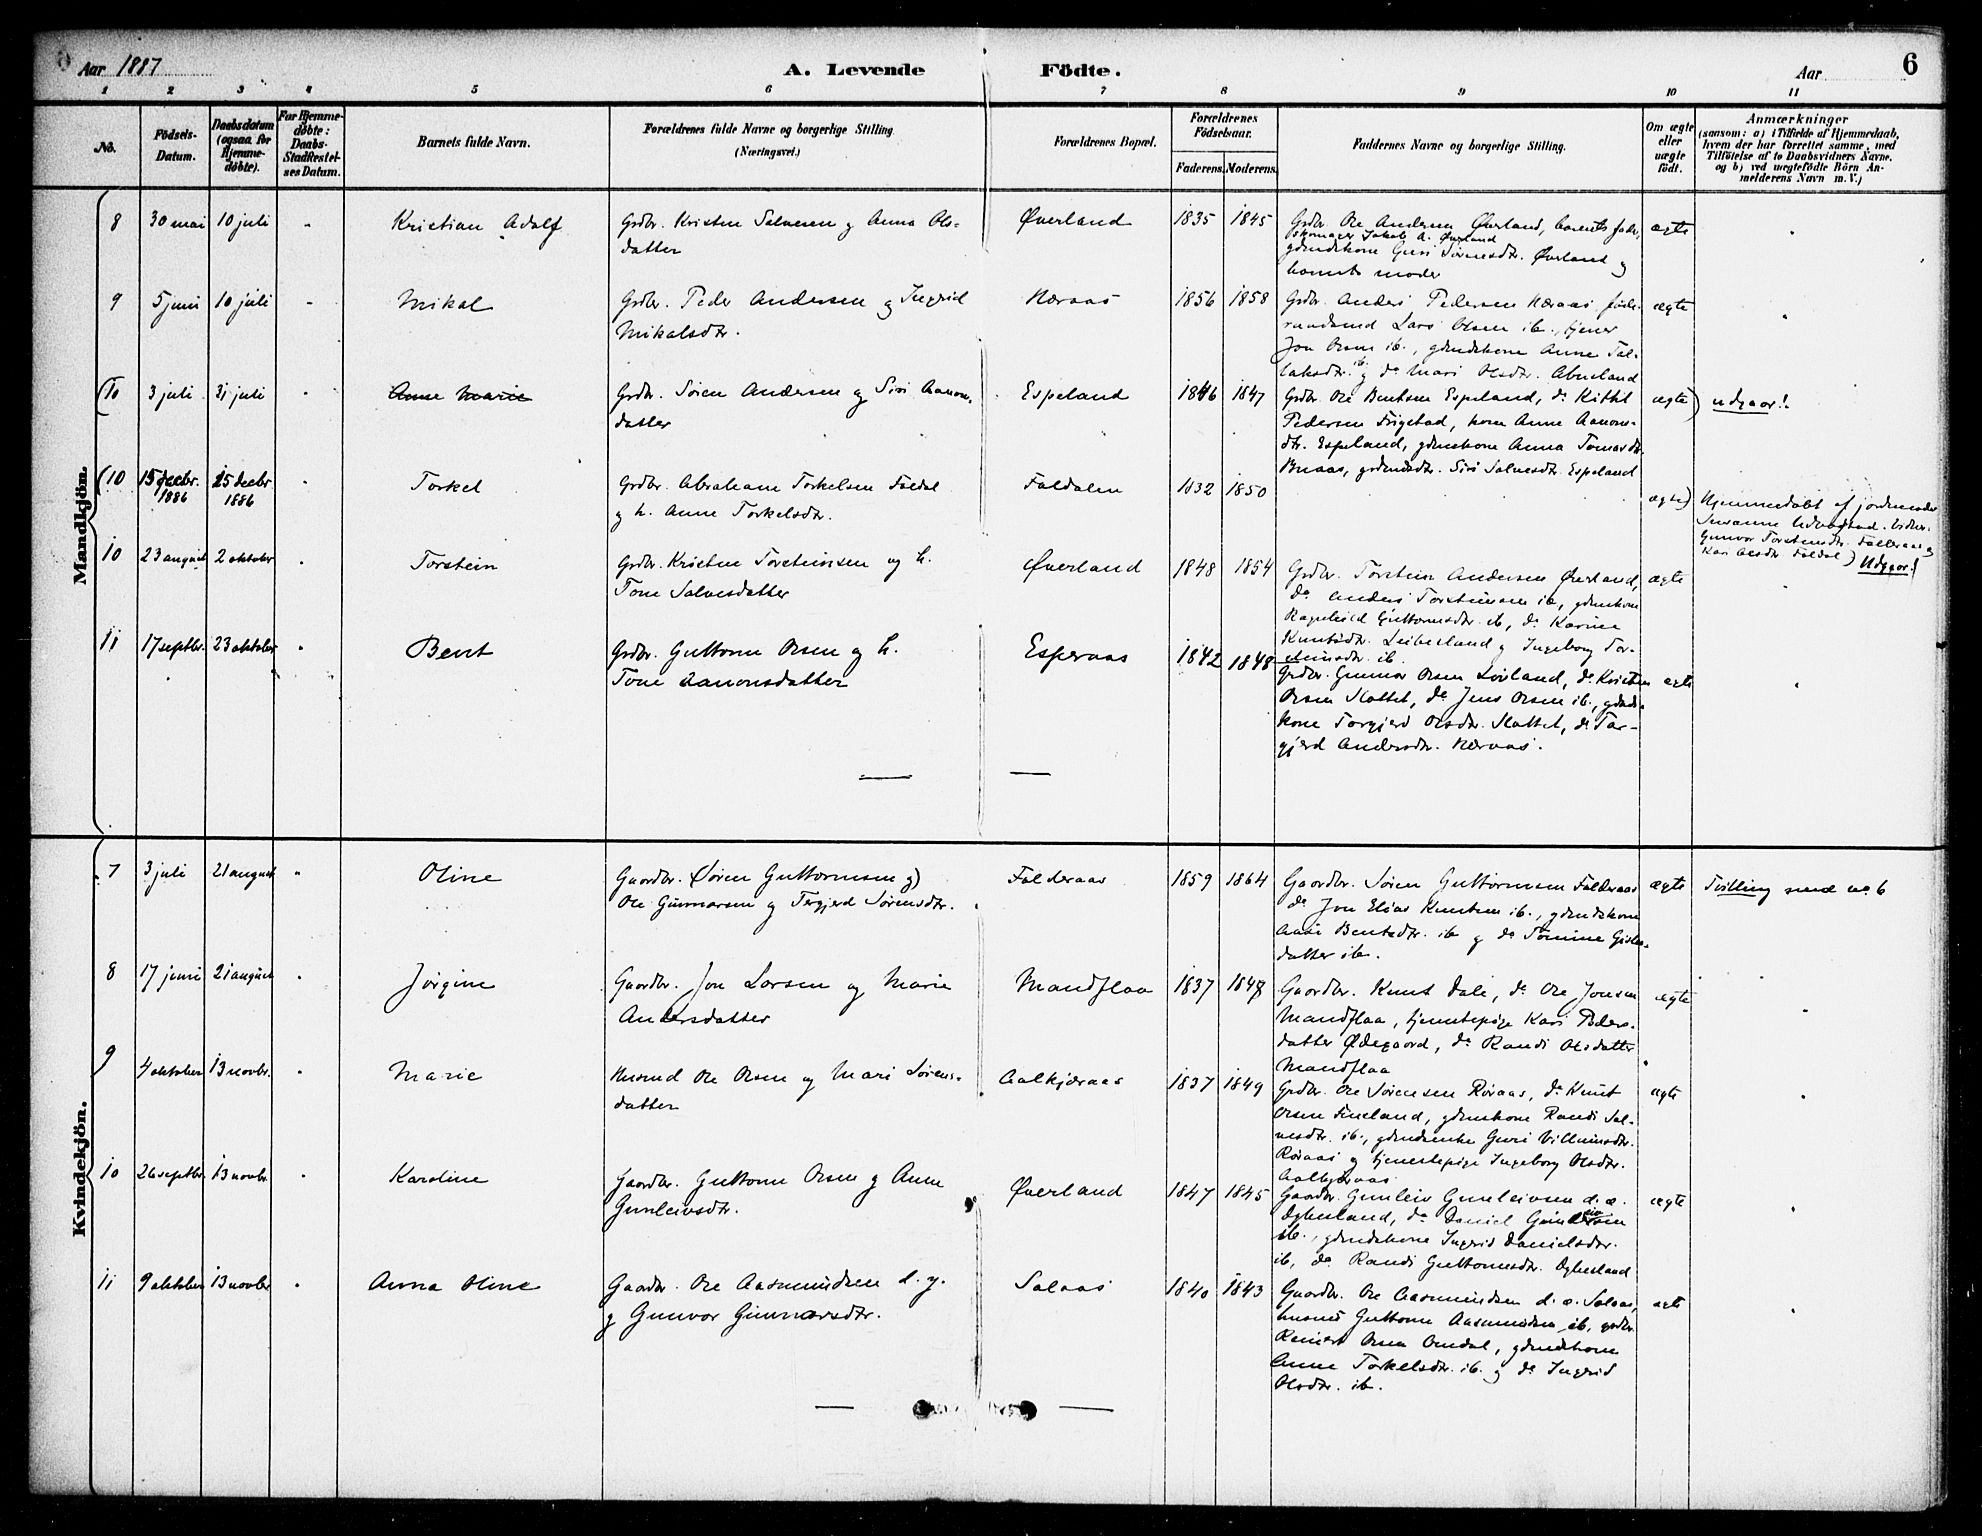 Aar 1887
A. Levende Födte.
Aar
6
1 2 3 4 5 6 7 8 9 10 11
No.
Födsels-Datum.
Daabsdatum (ogsaa for Hjemme-döbte).
For Hjemme-döbte: Daabs-Stadfæstel-ses Datum.
Barnets fulde Navn.
Forældrenes fulde Navne og borgerlige Stilling (Næringsvei.)
Forældrenes Bopæl.
Forældrenes Födselsaar.
Faderens. Moderens.
Faddernes Navne og borgerlige Stilling.
Om ægte eller uægte födt.
Anmærkninger
(saasom: a) i Tilfælde af Hjemmedaab, hvem der har forrettet samme, med Tilföielse af to Daabsvidners Navne, og b) ved uægtefödte Börn An-melderens Navn m. V.)
Mandkjön.
8 30 mai 10 juli " Kristian Adolf
Grdbr. Kristen Salvesen og Anna Ols-
datter
Øverland 1835 1845
Grdbr. Ole Andersen Øverland, barnets fader,
skomager Jakob A. Øverland
gdmdskone Guri Sørensdtr. Øverland og
barnets moder
ægte "
9 5 juni 10 juli " Mikal
Grdbr. Peder Andersen og Ingrid
Mikalsdtr.
Næraas 1856 1858
Grdbr. Anders Pedersen Næraas, føde-
raadsmd Lars Olsen ib., tjener
Jon Olsen ib., gdmdskone Anne Tal-
laksdtr. ib. og do Mari Olsdtr. Abusland
ægte "
(10 3 juli 31 juli " Anne Marie
Grdbr. Søren Andersen og Siri Aanons-
datter
Espeland 1846 1847
Grdbr. Ole Bentsen Espeland, do Kittil
Pedersen Frigstad, kone Anne Aanons-
dtr. Espeland, gdmskone Anna Tomasdtr.
Bnaas, grdmdsdtr. Siri Salvesdtr. Espeland
ægte) udgaar!
(10 15 decbr. 1886 25 decbr 1886 " Torkel
Grdbr. Abraham Torkelsen Faldal
og h. Anne Torkelsdtr.
Faldalen 1832 1850
ægte) Hjemmedøbt af jordemoder
Susanne Udbogstad. Vidner:
Gunvor Torsteinsdtr. Falderaas og
Kari Olsdtr. Faldal) Udgaar!
10 23 august 2 oktober " Torstein
Grdbr. Kristen Torsteinsen og h.
Tone Salvesdatter
Øverland 1848 1854
Grdbr. Torstein Andersen Øverland,
do Anders Torsteinsen ib, gdmskone
Ragnhild Guttormsdtr. ib, do Karine
Knutsdtr. Leibesland og Ingeborg Tor-
steinsdtr. ib.
ægte "
11 17 septbr. 23 oktober " Bent
Grdbr. Guttorm Olsen og h.
Tone Aanonsdatter
Esperaas 1842 1848
Grdbr. Gunnar Olsen Løiland, do Kristen
Olsen Slottet, do Jens Olsen ib., gdmds-
kone Torgjerd Olsdtr. Slottet, do Tar-
gjerd Andersdtr. Næraas.
ægte "
Kvindekjön.
7 3 juli 21 august " Oline
Gaardbr. (Søren Guttormsen og)
Ole Gunnarsen og Tergjerd Sørensdtr.
Falderaas 1859 1864
Gaardbr. Søren Guttormsen Falderaas
do Jon Elias Knutsen ib., gdmdskone
Aase Bentsdtr. ib og do Tomine Gisle-
datter ib.
ægte Tvilling med no. 6
8 17 juni 21 august " Jørgine
Gaardbr. Jon Larsen og Marie
Andersdatter
Mandflaa 1837 1847
Gaardbr. Knut Dale, do Ole Jonsen
Mandflaa, tjenestepige Kari Peders-
datter Ødegaard, do Randi Olsdatter
Mandflaa
ægte "
9 4 oktober 13 novbr. " Marie
Husmd Ole Olsen og Mari Sørens-
datter
Aalkjæraas 1837 1849
Grdbr. Ole Sørensen Røiaas, do Knut
Olsen Fineland, gdmskone Randi Sal-
vesdtr. ib., gdmdsenke Guri Villumsdtr.
Røiaas og tjenestepige Ingeborg Olsdtr.
Aalkjæraas
ægte "
10 26 septbr. 13 novbr. " Karoline
Gaardbr. Guttorm Olsen og Anne
Gunleivsdtr.
Øverland 1847 1845
Gaardbr. Gunleiv Gunleivsen d. æ.
Øybusland, do Daniel Gunleivsen
ib., gdmdskone Ingrid Danielsdtr.
ib, do Randi Guttormsdtr. Øybusland
ægte "
11 9 oktober 13 novbr " Anna Oline
Gaardbr. Ole Aasmundsen d. y.
og Gunvor Gunnarsdtr.
Solaas 1840 1843
Gaardbr. Ole Aasmundsen d. æ. Solaas,
husmd Guttorm Aasmundsen ib, grdbr.
Reinert Olsen Omdal, gdmdskone
Anne Torkelsdtr. ib. og do Ingrid
Olsdtr. ib.
ægte "